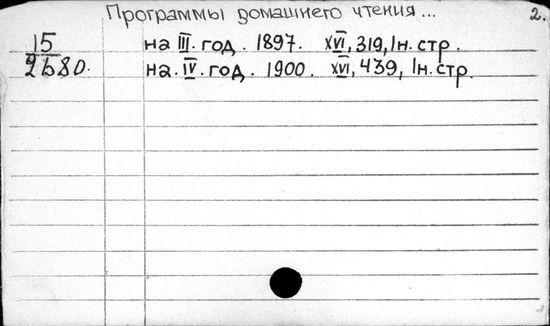 Программы домашнего чтения... 2.
15 на III. год. 1897. XVI, 319, 1н. стр.
2680. на. IV. год. 1900. XVI, 439, 1н. стр.